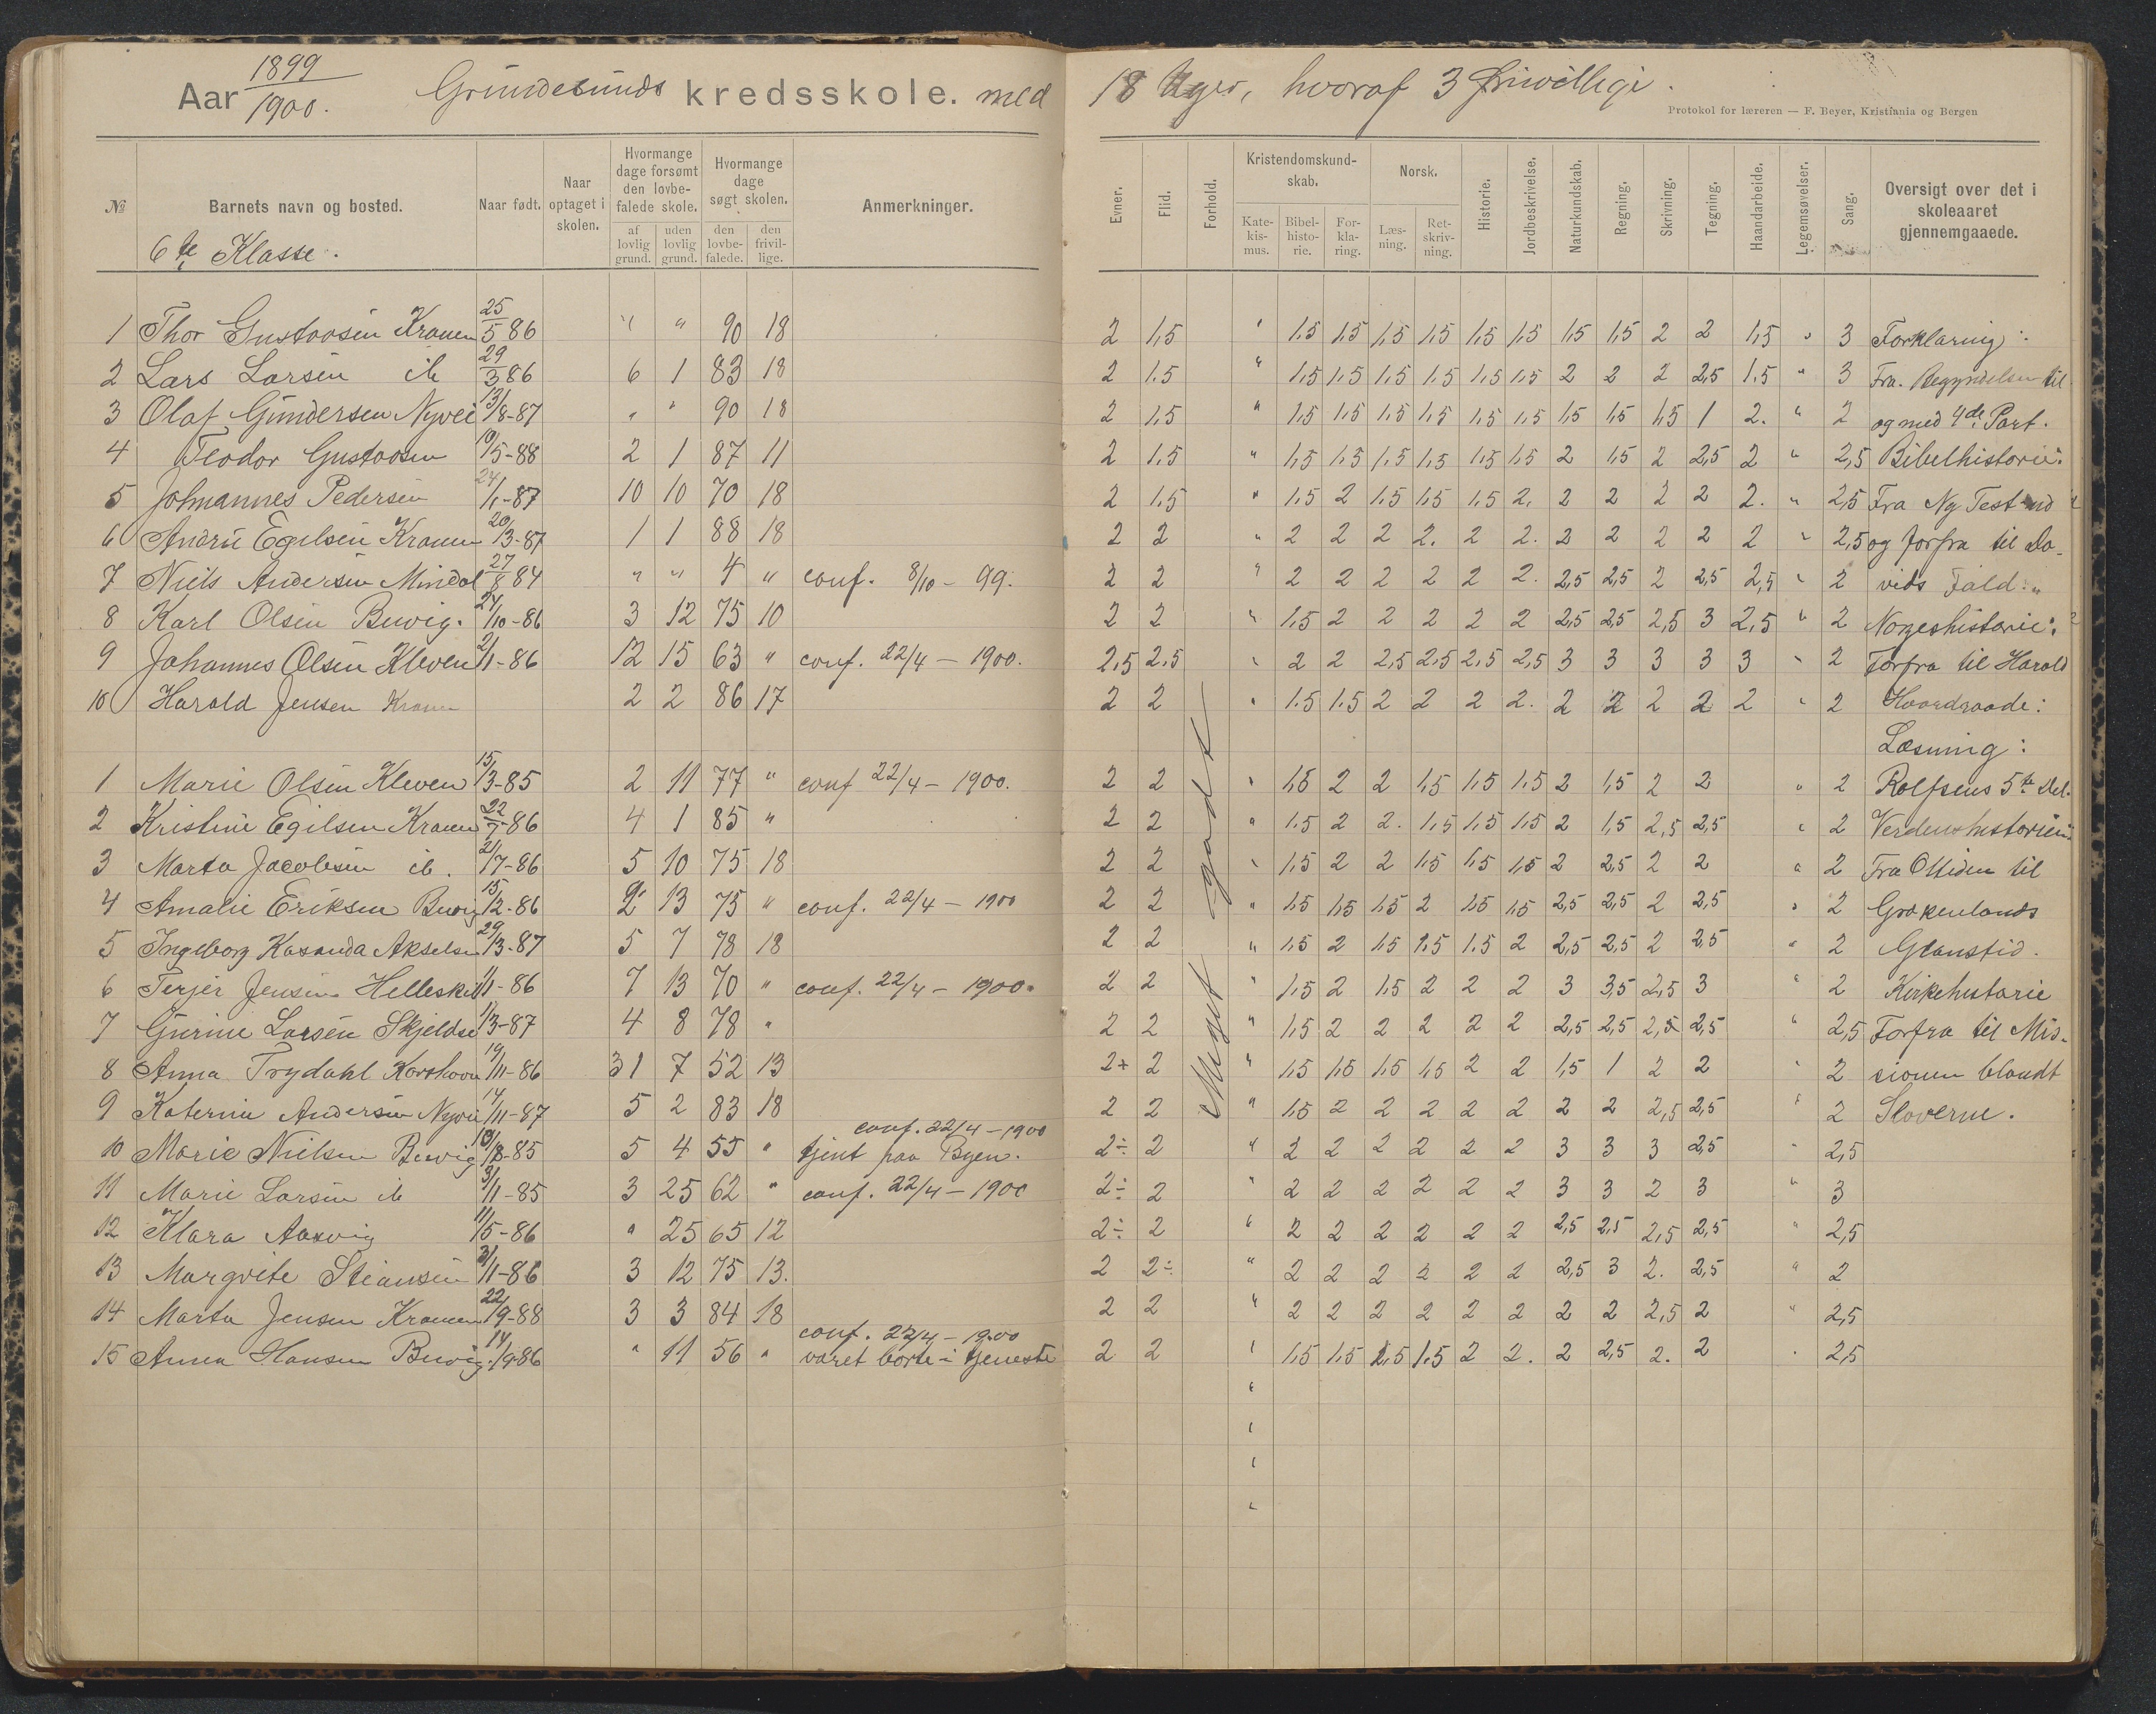 Aar 1899/1900. Grundesunds kredsskole. med 18 Uger, hvoraf 3 frivillige.
Protokol for læreren — F. Beyer, Kristiania og Bergen
№ Barnets navn og bosted. Naar født. Naar optaget i skolen. Hvormange dage forsømt den lovbefalede skole. af lovlig grund. uden lovlig grund. Hvormange dage søgt skolen. den lovbefalede. den frivillige. Anmerkninger.
Evner. Flid. Forhold. Kristendomskundskab. Katekismus. Bibelhistorie. Forklaring. Norsk. Læsning. Retskrivning. Historie. Jordbeskrivelse. Naturkundskab. Regning. Skrivning. Tegning. Haandarbeide. Legemsøvelser. Sang. Oversigt over det i skoleaaret gjennemgaaede.
6te Klasse.
1 Thor Gustavsen Kraaen 25/5 86 " " 90 18 2 1,5 " 1.5 1.5 1,5 1,5 1,5 1,5 1,5 1,5 2 2 1,5 " 3 Forklaring:
2 Lars Larsen ib 29/3 86 6 1 83 18 2 1.5 " 1,5 1,5 1.5 1.5 1.5 1,5 2 2 2 2,5 1.5 " 3 Fra Begyndelsen til
3 Olaf Gundersen Nyvei 13/8-87 " " 90 18 2 1,5 " 1,5 1,5 1,5 1,5 1,5 1,5 1,5 1,5 1,5 1 2. " 2 og med 4de Part.
4 Teodor Gustavsen 10/5-88 2 1 87 11 2 1.5 " 1,5 1,5 1,5 1,5 1,5 1,5 2 1,5 2 2,5 2 " 2,5 Bibelhistorie:
5 Johannes Pedersen 24/1-87 10 10 70 18 2 1.5 " 1.5 2 1.5 1,5 1.5 2. 2 2 2 2 2. " 2,5 Fra Ny Test ud
6 Andrii Egilsen Kraaen 20/3-87 1 1 88 18 2 2 " 2 2 2 2. 2 2. 2 2 2 2 2 " 2,5 og forfra til Da-
7 Niels Andersen Mindal 27/8 84 " " 4 " conf. 8/10 - 99. 2 2 " 2 2 2 2 2 2. 2,5 2,5 2 2,5 2,5 " 2 vids Fald."
8 Karl Olsen Buvig. 24/10-86 3 12 75 10 2 2 " 1.5 2 2 2 2 2 2,5 2,5 2,5 3 2,5 " 2 Norgeshistorie:
9 Johannes Olsen Kleven 2/1-86 12 15 63 " conf. 22/4 - 1900. 2,5 2.5 " 2 2 2,5 2,5 2,5 2,5 3 3 3 3 3 " 2 Forfra til Harald
10 Harald Jensen Kraaen 2 2 86 17 2 2 " 1.5 1.5 2 2 2 2. 2 2 2 2 2 " 2 Haardraade:
Læsning:
1 Marie Olsen Kleven 15/3-85 2 11 77 " conf 22/4 - 1900. 2 2 " 1,5 2 2 1,5 1,5 1,5 2 1,5 2 2 " 2 Rolfsens 5te Del.
2 Kristine Egilsen Kraaen 22/7-86 4 1 85 " 2 2 " 1.5 2 2. 1.5 1,5 1,5 2 1,5 2,5 2,5 " 2 Verdenshistorien:
3 Marta Jacobsen ib. 2/7-86 5 10 75 18 2 2 " 1,5 2 2 1,5 1,5 1,5 2 2,5 2 2 " 2 Fra Oltiden til
4 Amalie Eriksen Buvig 15/12-86 2 13 75 " conf. 22/4 - 1900 2 2 " 1.5 1,5 1,5 2 1,5 1,5 2,5 2,5 2 2,5 " 2 Grækenlands
5 Ingeborg Kasanda Akselsen 29/3-87 5 7 78 18 2 2 " 1.5 2 1.5 1.5 1.5 2 2,5 2,5 2 2,5 " 2 Glanstid.
6 Terjer Jensen Helleskil 1/1-86 7 13 70 " conf. 22/4 - 1900. 2 2 " 1.5 2 1.5 2 2 2 3 3,5 2,5 3 " 2 Kirkehistorie
7 Gurine Larsen Skjeldsø 1/3-87 4 8 78 " 2 2 " 1.5 2 2 2 2 2 2,5 2,5 2,5 2,5 " 2,5 Forfra til Mis-
8 Anna Trydahl Korshavn 19/11-86 31 7 52 13 2+ 2 " 1.5 1,5 1,5 1,5 2 2 1,5 1 2 2 " 2 sionen blandt
9 Katerine Andersen Nyvei 14/11-87 5 2 83 18 2 2 " 1.5 2 2 2 2 2 2 2 2,5 2,5 " 2 Slaverne.
conf. 22/4 - 1900
10 Marie Nielsen Buvig 13/8-85 5 4 55 " tjent paa Byen. 2÷ 2 " 2 2 2 2 2 2 3 3 3 2,5 " 2,5
11 Marie Larsen ib 3/1-85 3 25 62 " conf. 22/4 - 1900 2÷ 2 " 2 2 2 2 2 2 3 3 2 3 " 3
12 Klara Aasvig 11/5-86 " 25 65 12 2÷ 2 " 2 2 2 2 2 2 2,5 2,5 2,5 2,5 " 2,5
13 Margrete Stiansen 3/1-86 3 12 75 13. 2 2÷ " 2 2 2 2 2 2 2,5 3 2. 2,5 " 2
14 Marta Jensen Kraaen 22/9-88 3 3 84 18 2 2 " 2 2 2 2 2 2 2 2 2,5 2 " 2,5
conf. 22/4 - 1900
15 Anna Hansen Buvig. 14/9-86 " 11 56 " været borte i tjeneste 2 2 " 1.5 1.5 1.5 1.5 2 2. 2 2,5 2. 2 " 2,5
Meget godt